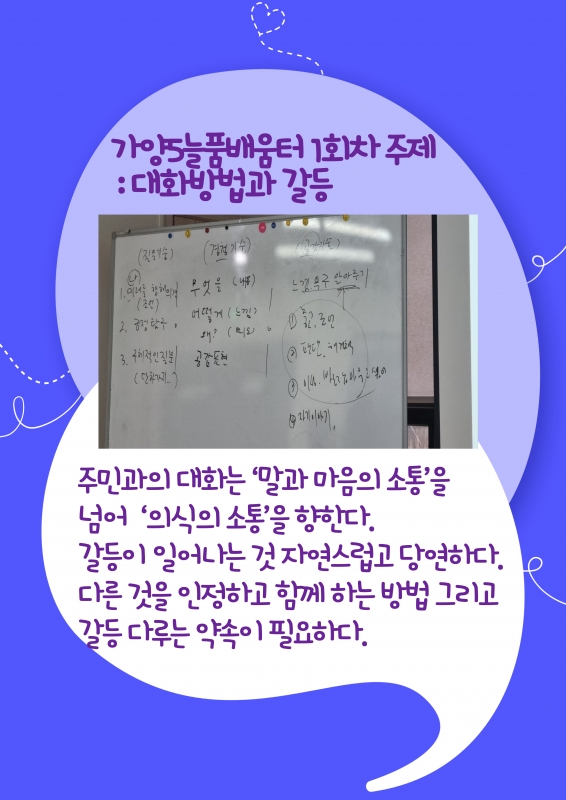 가양5늘품배움터 1회차 주제
: 대화방법과 갈등
(질문기술) (경청기술)
1.
2. 공정탐구
3. 구체적인 질문
무엇을 (내용)
어떻게 (느낌)
왜? (의도)
공감표현
느낌, 욕구 알아주기
① 충고, 조언
② 판단, 해석
③
④ 자기이야기
주민과의 대화는 ‘말과 마음의 소통’을
넘어 ‘의식의 소통’을 향한다.
갈등이 일어나는 것 자연스럽고 당연하다.
다른 것을 인정하고 함께 하는 방법 그리고
갈등 다루는 약속이 필요하다.